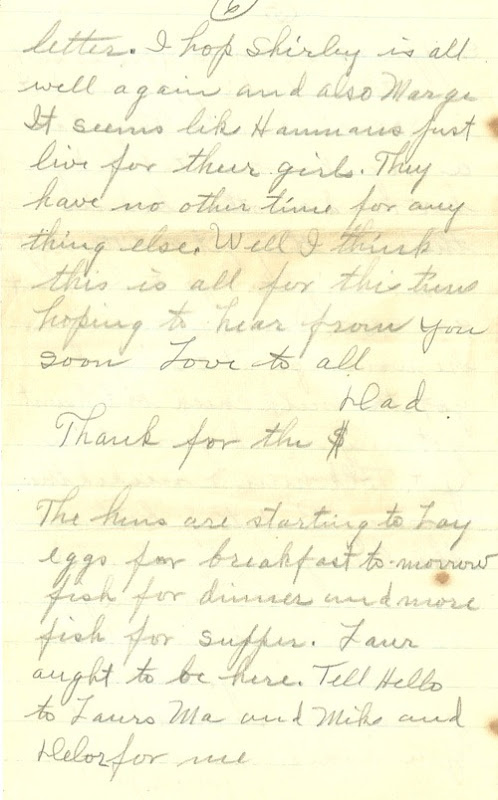 6
letter. I hop Shirley is all
well again and also Marge
It seems like Hammans just
live for their girl. They
have no other time for any
thing else. Well I think
this is all for this time
hoping to hear from you
soon Love to all
Dad.
Thank for the $
The hens are starting to Lay
eggs for breakfast to-morrow
fish for dinner and more
fish for supper. Laur
aught to be here. Tell Hello
to Laurs Ma and Mike and
Delor for me